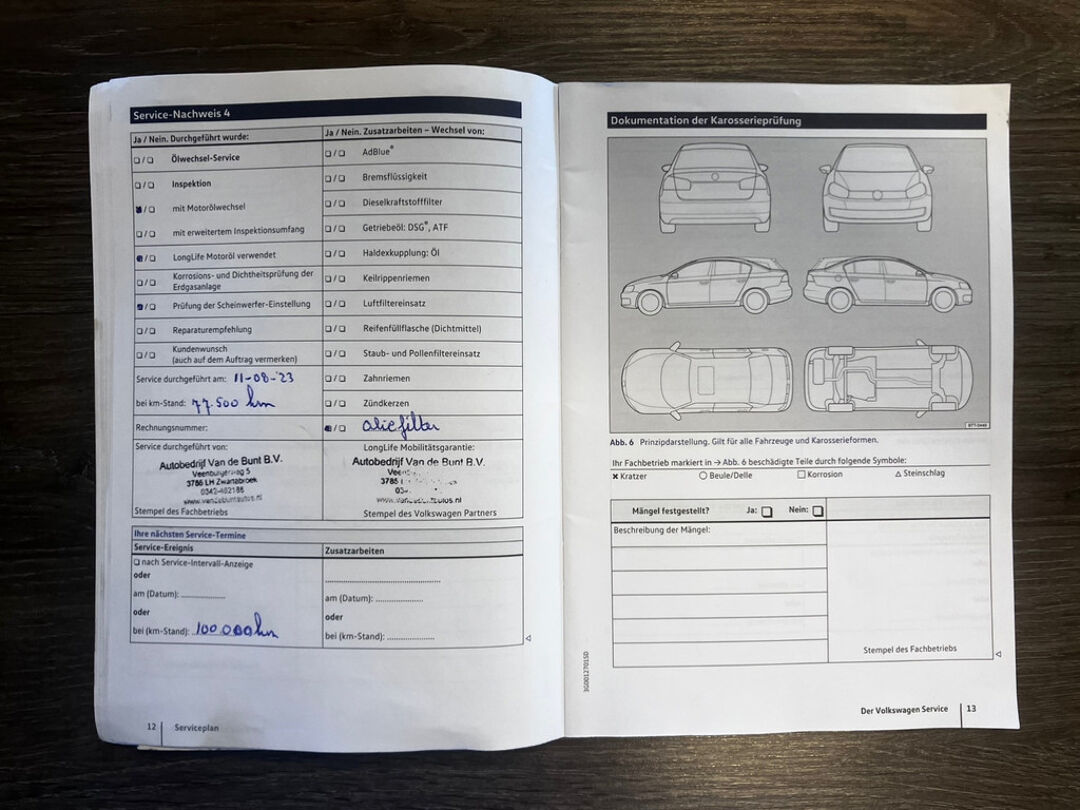 Service-Nachweis 4
Ja / Nein. Durchgeführt wurde:
Ölwechsel-Service
Inspektion
mit Motorölwechsel
mit erweitertem Inspektionsumfang
LongLife Motoröl verwendet
Korrosions- und Dichtheitsprüfung der
Erdgasanlage
Prüfung der Scheinwerfer-Einstellung
Reparaturempfehlung
Kundenwunsch
(auch auf dem Auftrag vermerken)
Service durchgeführt am: 11-08-'23
bei km-Stand: 77.500 km
Rechnungsnummer:
Service durchgeführt von:
Autobedrijf Van de Bunt B.V.
Veenburgerweg 5
3785 LH Zwartebroek
0342-462186
www.vandebuntautos.nl
Stempel des Fachbetriebs
Ja / Nein. Zusatzarbeiten – Wechsel von:
AdBlue®
Bremsflüssigkeit
Dieselkraftstofffilter
Getriebeöl: DSG®, ATF
Haldexkupplung: Öl
Keilrippenriemen
Luftfiltereinsatz
Reifenfüllflasche (Dichtmittel)
Staub- und Pollenfiltereinsatz
Zahnriemen
Zündkerzen
oliefilter
LongLife Mobilitätsgarantie:
Autobedrijf Van de Bunt B.V.
3785
Stempel des Volkswagen Partners
Ihre nächsten Service-Termine
Service-Ereignis
nach Service-Intervall-Anzeige
oder
am (Datum): ................
oder
bei (km-Stand): 100.000 km
Zusatzarbeiten
am (Datum): ................
oder
bei (km-Stand): ................
12 Serviceplan
Dokumentation der Karosserieprüfung
BTT-0449
Abb. 6 Prinzipdarstellung. Gilt für alle Fahrzeuge und Karosserieformen.
Ihr Fachbetrieb markiert in → Abb. 6 beschädigte Teile durch folgende Symbole:
✖ Kratzer ○ Beule/Delle □ Korrosion △ Steinschlag
Mängel festgestellt? Ja: ❑ Nein: ❑
Beschreibung der Mängel:
Stempel des Fachbetriebs
3G0012701SD
Der Volkswagen Service 13